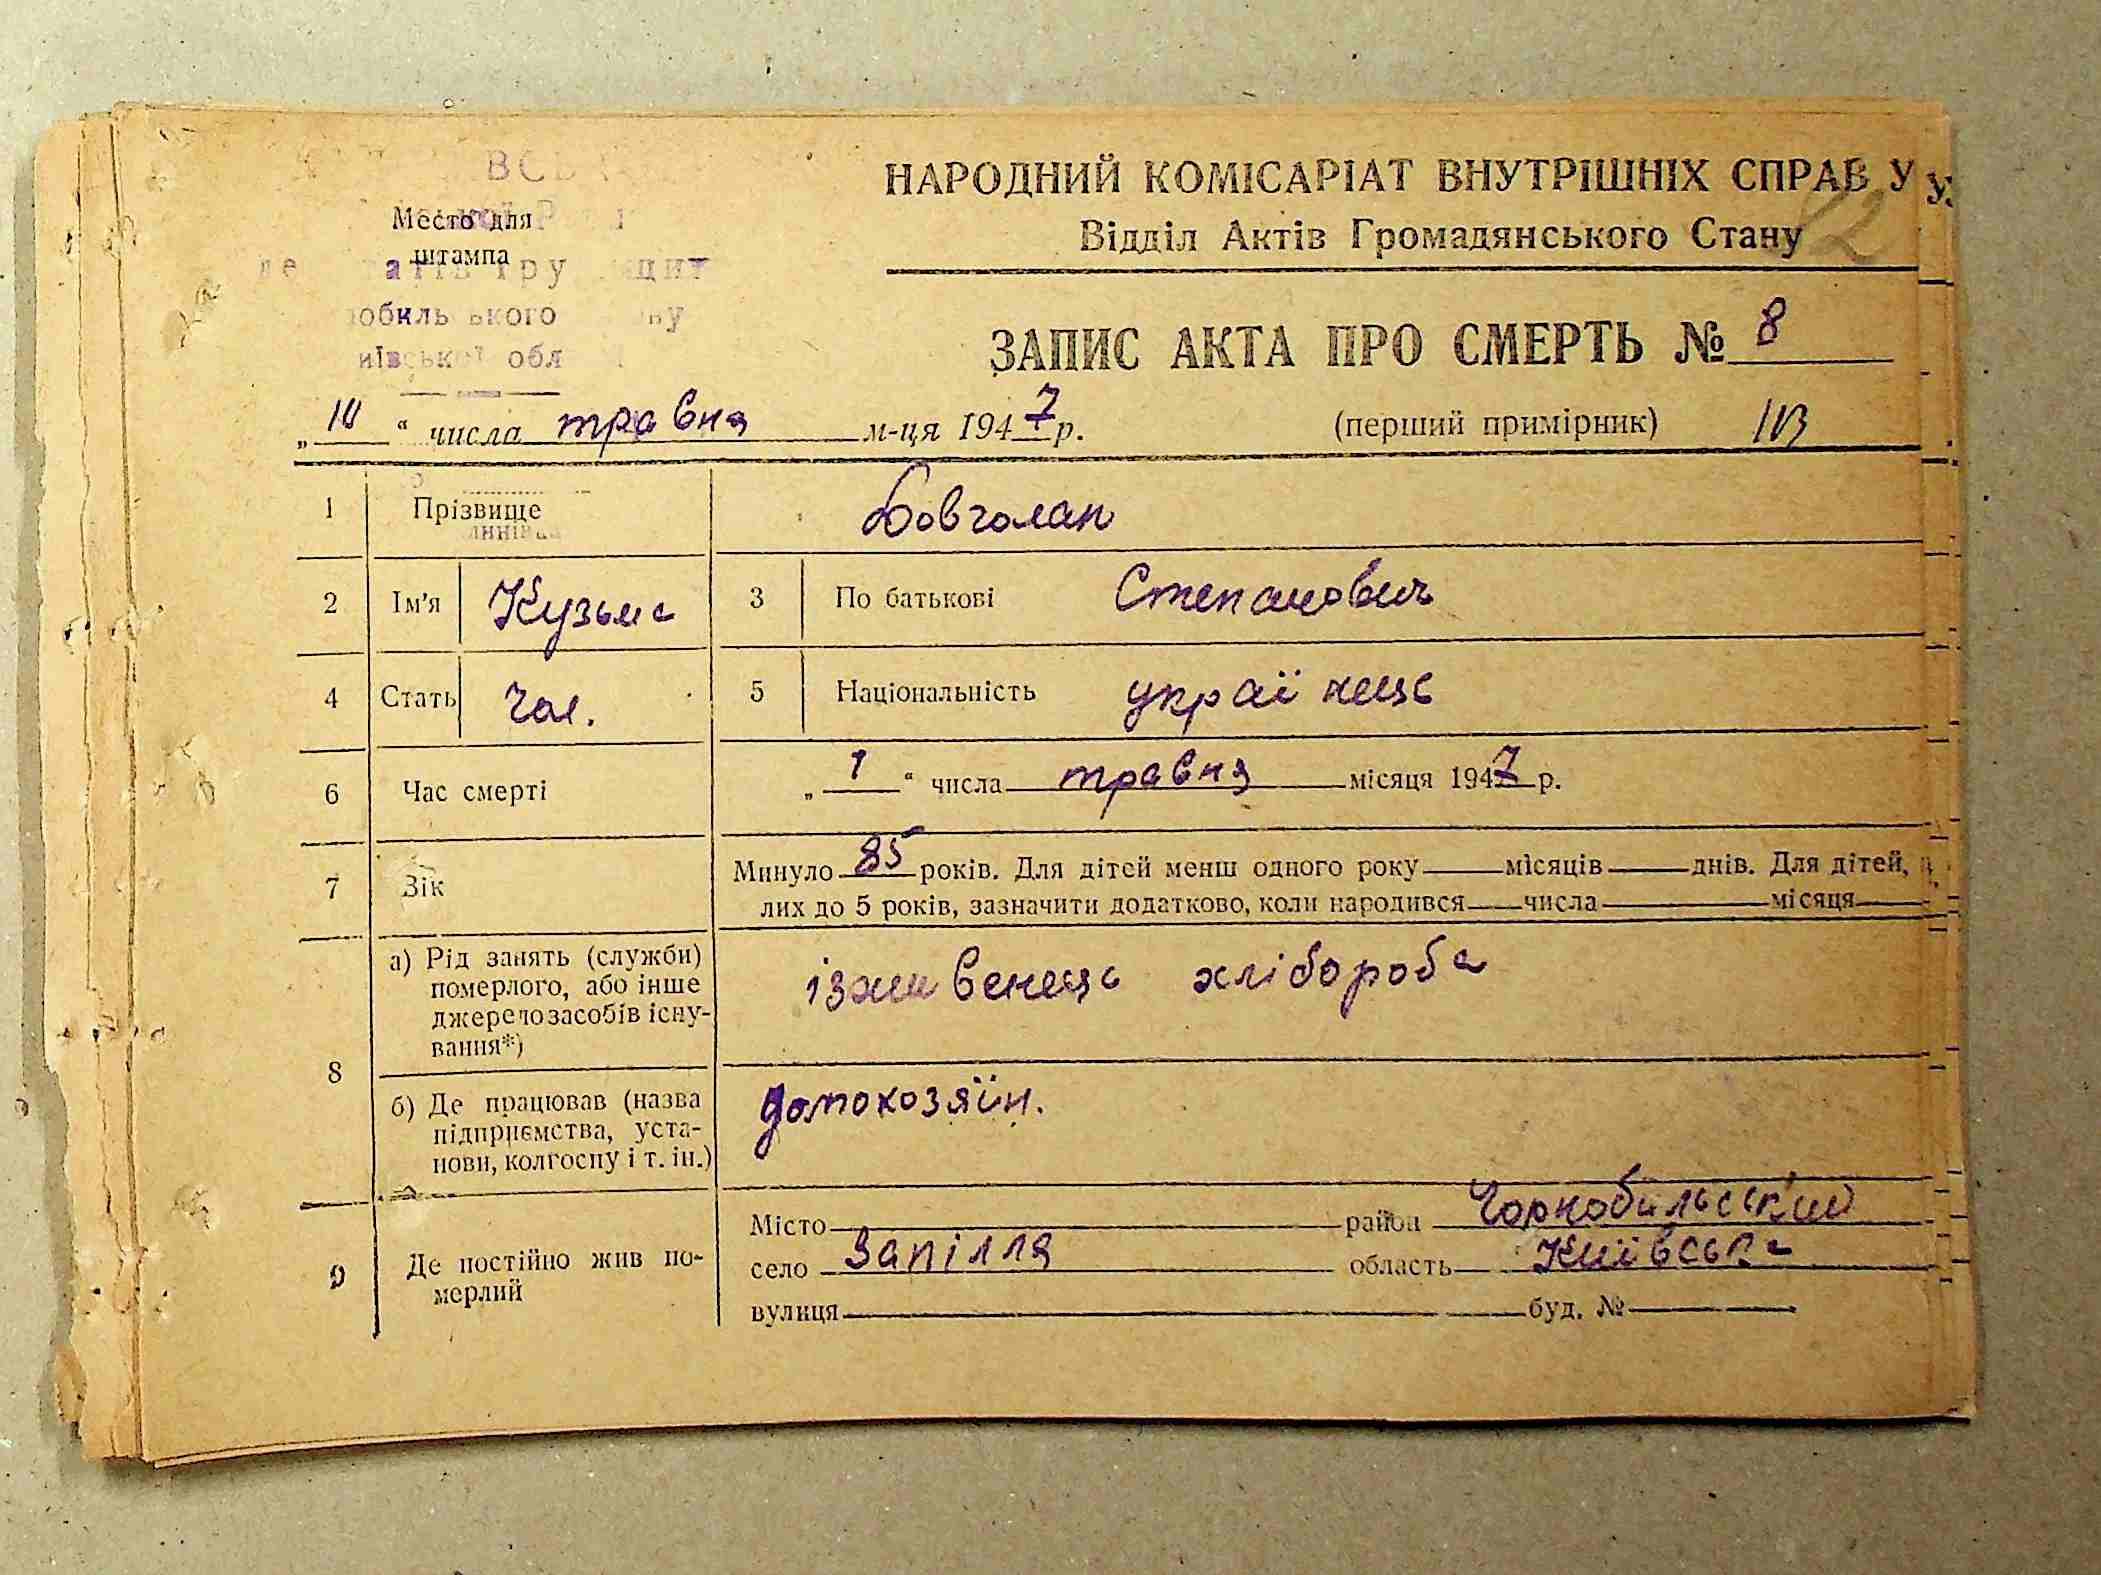 НАРОДНИЙ КОМІСАРІАТ ВНУТРІШНІХ СПРАВ У
Відділ Актів Громадянського Стану
Место для
штампа
ЗАПИС АКТА ПРО СМЕРТЬ № 8
„10“ числа травня м-ця 1947 р. (перший примірник)
1 Прізвище Довголап
2 Ім'я Кузьма 3 По батькові Степанович
4 Стать чол. 5 Національність українець
6 Час смерті „1“ числа травня місяця 1947 р.
7 Вік Минуло 85 років. Для дітей менш одного року місяців днів. Для дітей,
лих до 5 років, зазначити додатково, коли народився числа місяця
8 а) Рід занять (служби) померлого, або інше джерело засобів існування*) іждивенець хлібороба
б) Де працював (назва підприємства, установи, колгоспу і т. ін.) домохозяїн.
9 Де постійно жив померлий Місто район Чорнобильський
село Запілля область Київська
вулиця буд. №